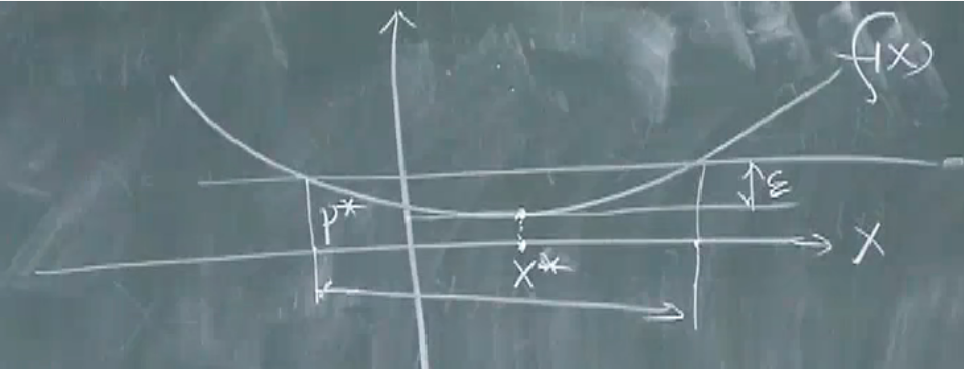 f(x)
ε
p*
x
x*